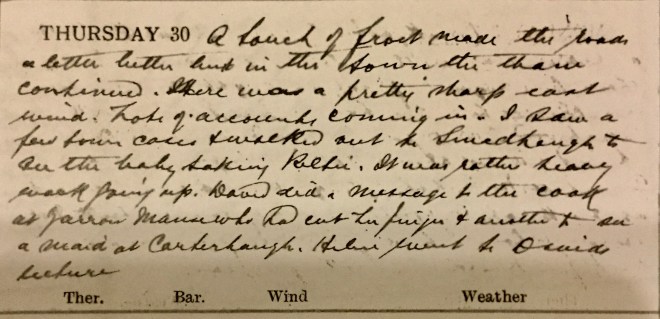 THURSDAY 30 A touch of frost made the roads
a letter better but in the town the thaw
continued. There was a pretty sharp east
wind. Lots of accounts coming in. I saw a
few town cases & walked out to Smedheugh to
see the baby taking Pelsir. It was rather heavy
work going up. David did a message to the cook
at Yarrow Manse who had cut her finger & another to see
a maid at Carterhaugh. Helen went to Osuids
lecture
Ther. Bar. Wind Weather